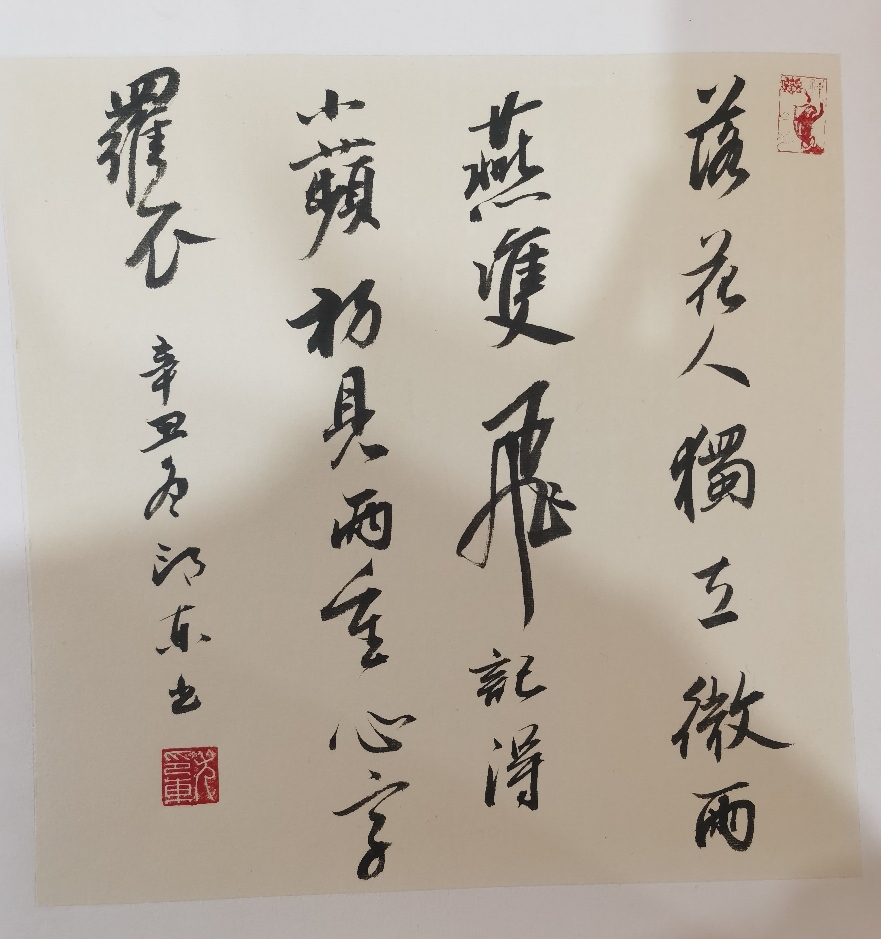 落花人獨立微雨
燕雙飛記得
小蘋初見兩重心字
羅衣
辛丑冬 东书